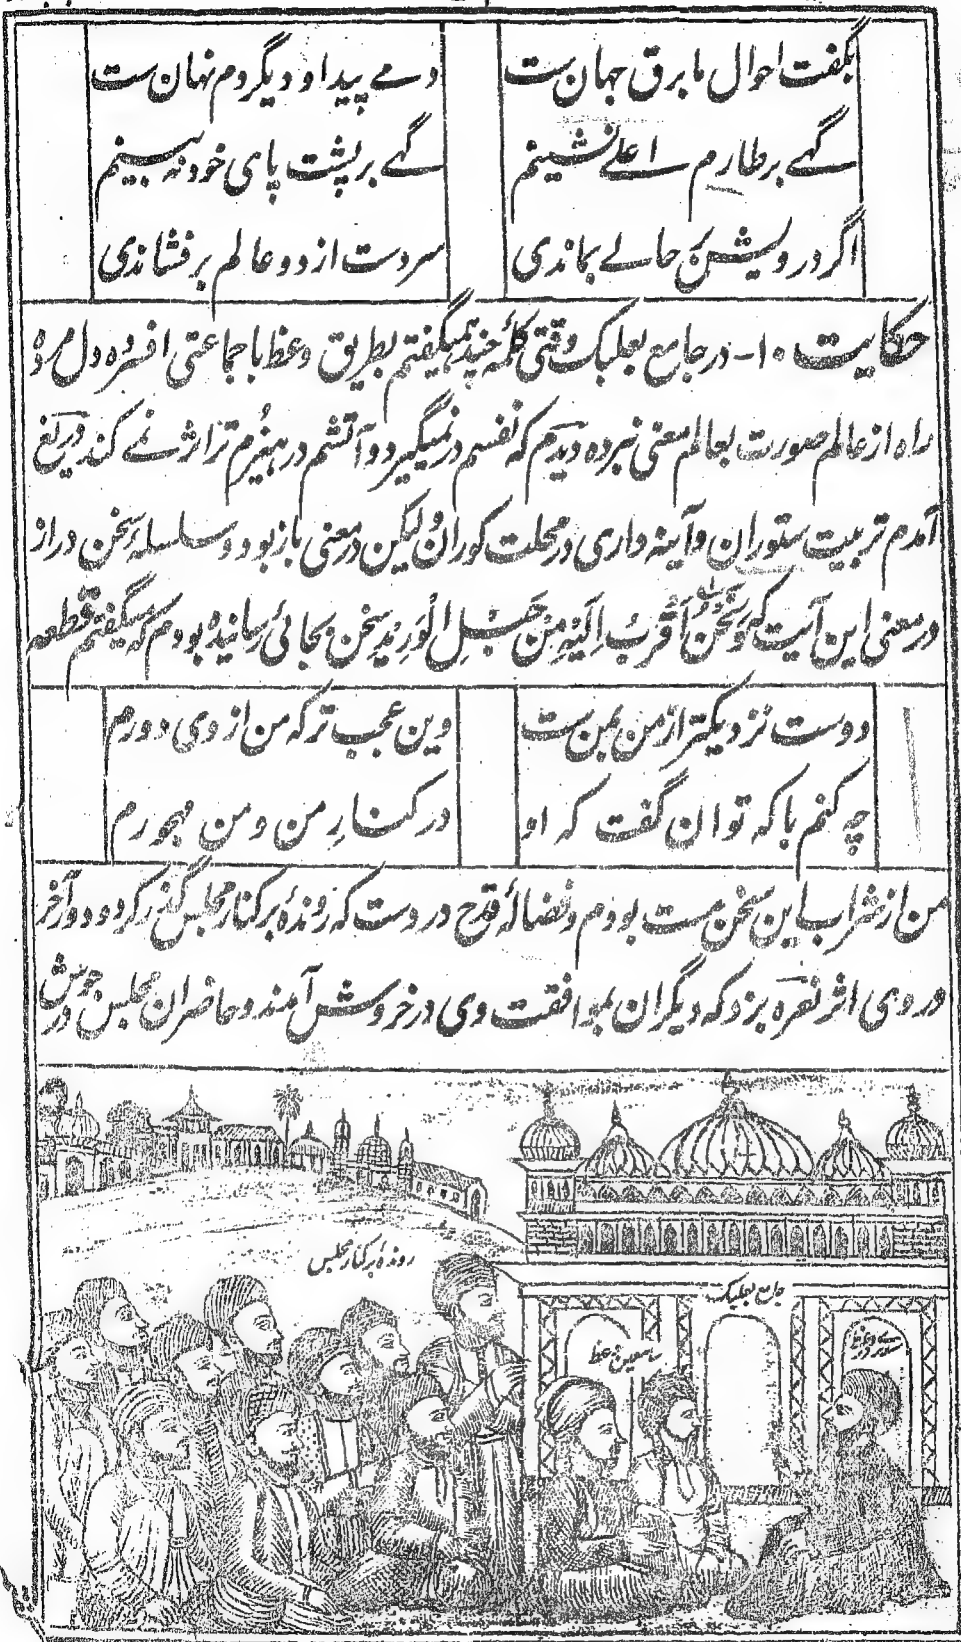 بگفت احوال ما برق جهان ست دمے پیدا و دیگر دم نهان ست
گہے بر طارم اعلے نشینم گہے بر پشت پای خود نہ بینم
اگر درویش بر حالے بماندی سر دست از دو عالم بر فشاندی
حکایت ۱۰- در جامع بعلبک وقتی کلمۂ چند ہمیگفتم بطریق وعظ با جماعتی افسردہ دل مردہ
راہ از عالم صورت بعالم معنی نبردہ دیدم کہ نفسم در نمیگیرد و آتشم در ہیزم تر اثر نمے کند دریغ
آمدم تربیت ستوران و آینہ داری در محلت کوران و لیکن در معنی باز بود و سلسلۂ سخن دراز
در معنی این آیت کہ وَنَحْنُ اَقْرَبُ اِلَیْہِ مِنْ حَبْلِ الْوَرِیْدِ سخن بجائی رسانیدہ بودم کہ میگفتم قطعہ
دوست نزدیکتر از من بمن ست وین عجب تر کہ من از وی دورم
چہ کنم با کہ توان گفت کہ او در کنارِ من و من مہجورم
من از شراب این سخن مست بودم و فضالۂ قدح در دست کہ روندۂ بر کنار مجلس گذر کرد و دور آخر
در وی اثر نعرہ بزد کہ دیگران بموافقت وی در خروش آمدند و حاضران مجلس در جوش
روندۂ بر کنار مجلس
جامع بعلبک
سامعین وعظ